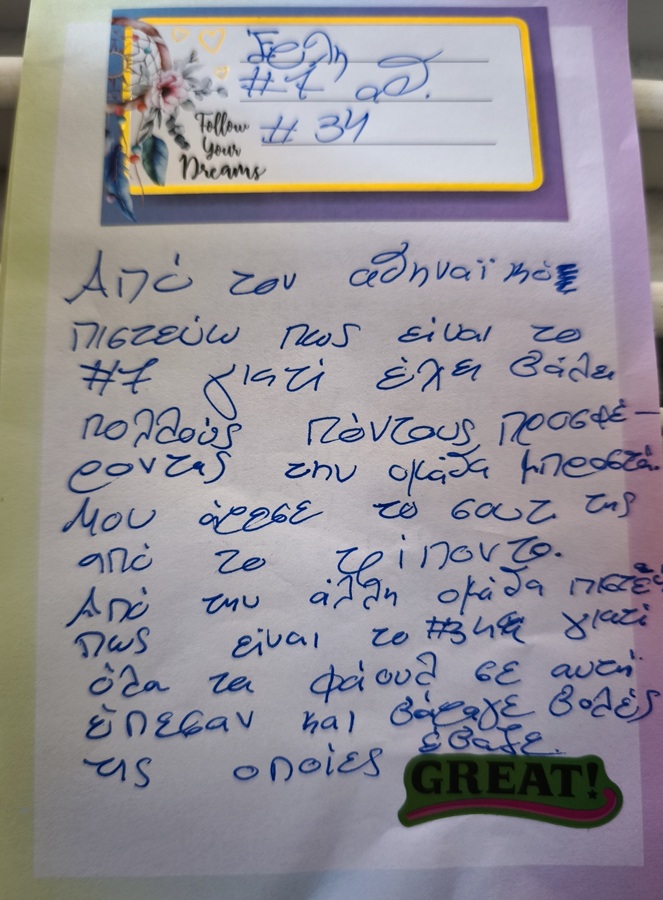 Έρλη
#7 αθ.
#34
Follow
Your
Dreams
Από τον αθηναϊκό
πιστεύω πως είναι το
#7 γιατί έχει βάλει
πολλούς πόντους προσφέ-
ροντας την ομάδα μπροστά.
Μου άρεσε το σουτ της
από το τρίποντο.
Από την άλλη ομάδα πιστεύω
πως είναι το #34 γιατί
όλα τα φάουλ σε αυτή
έπεσαν και βάραγε βολές
τις οποίες έβαζε.
GREAT!